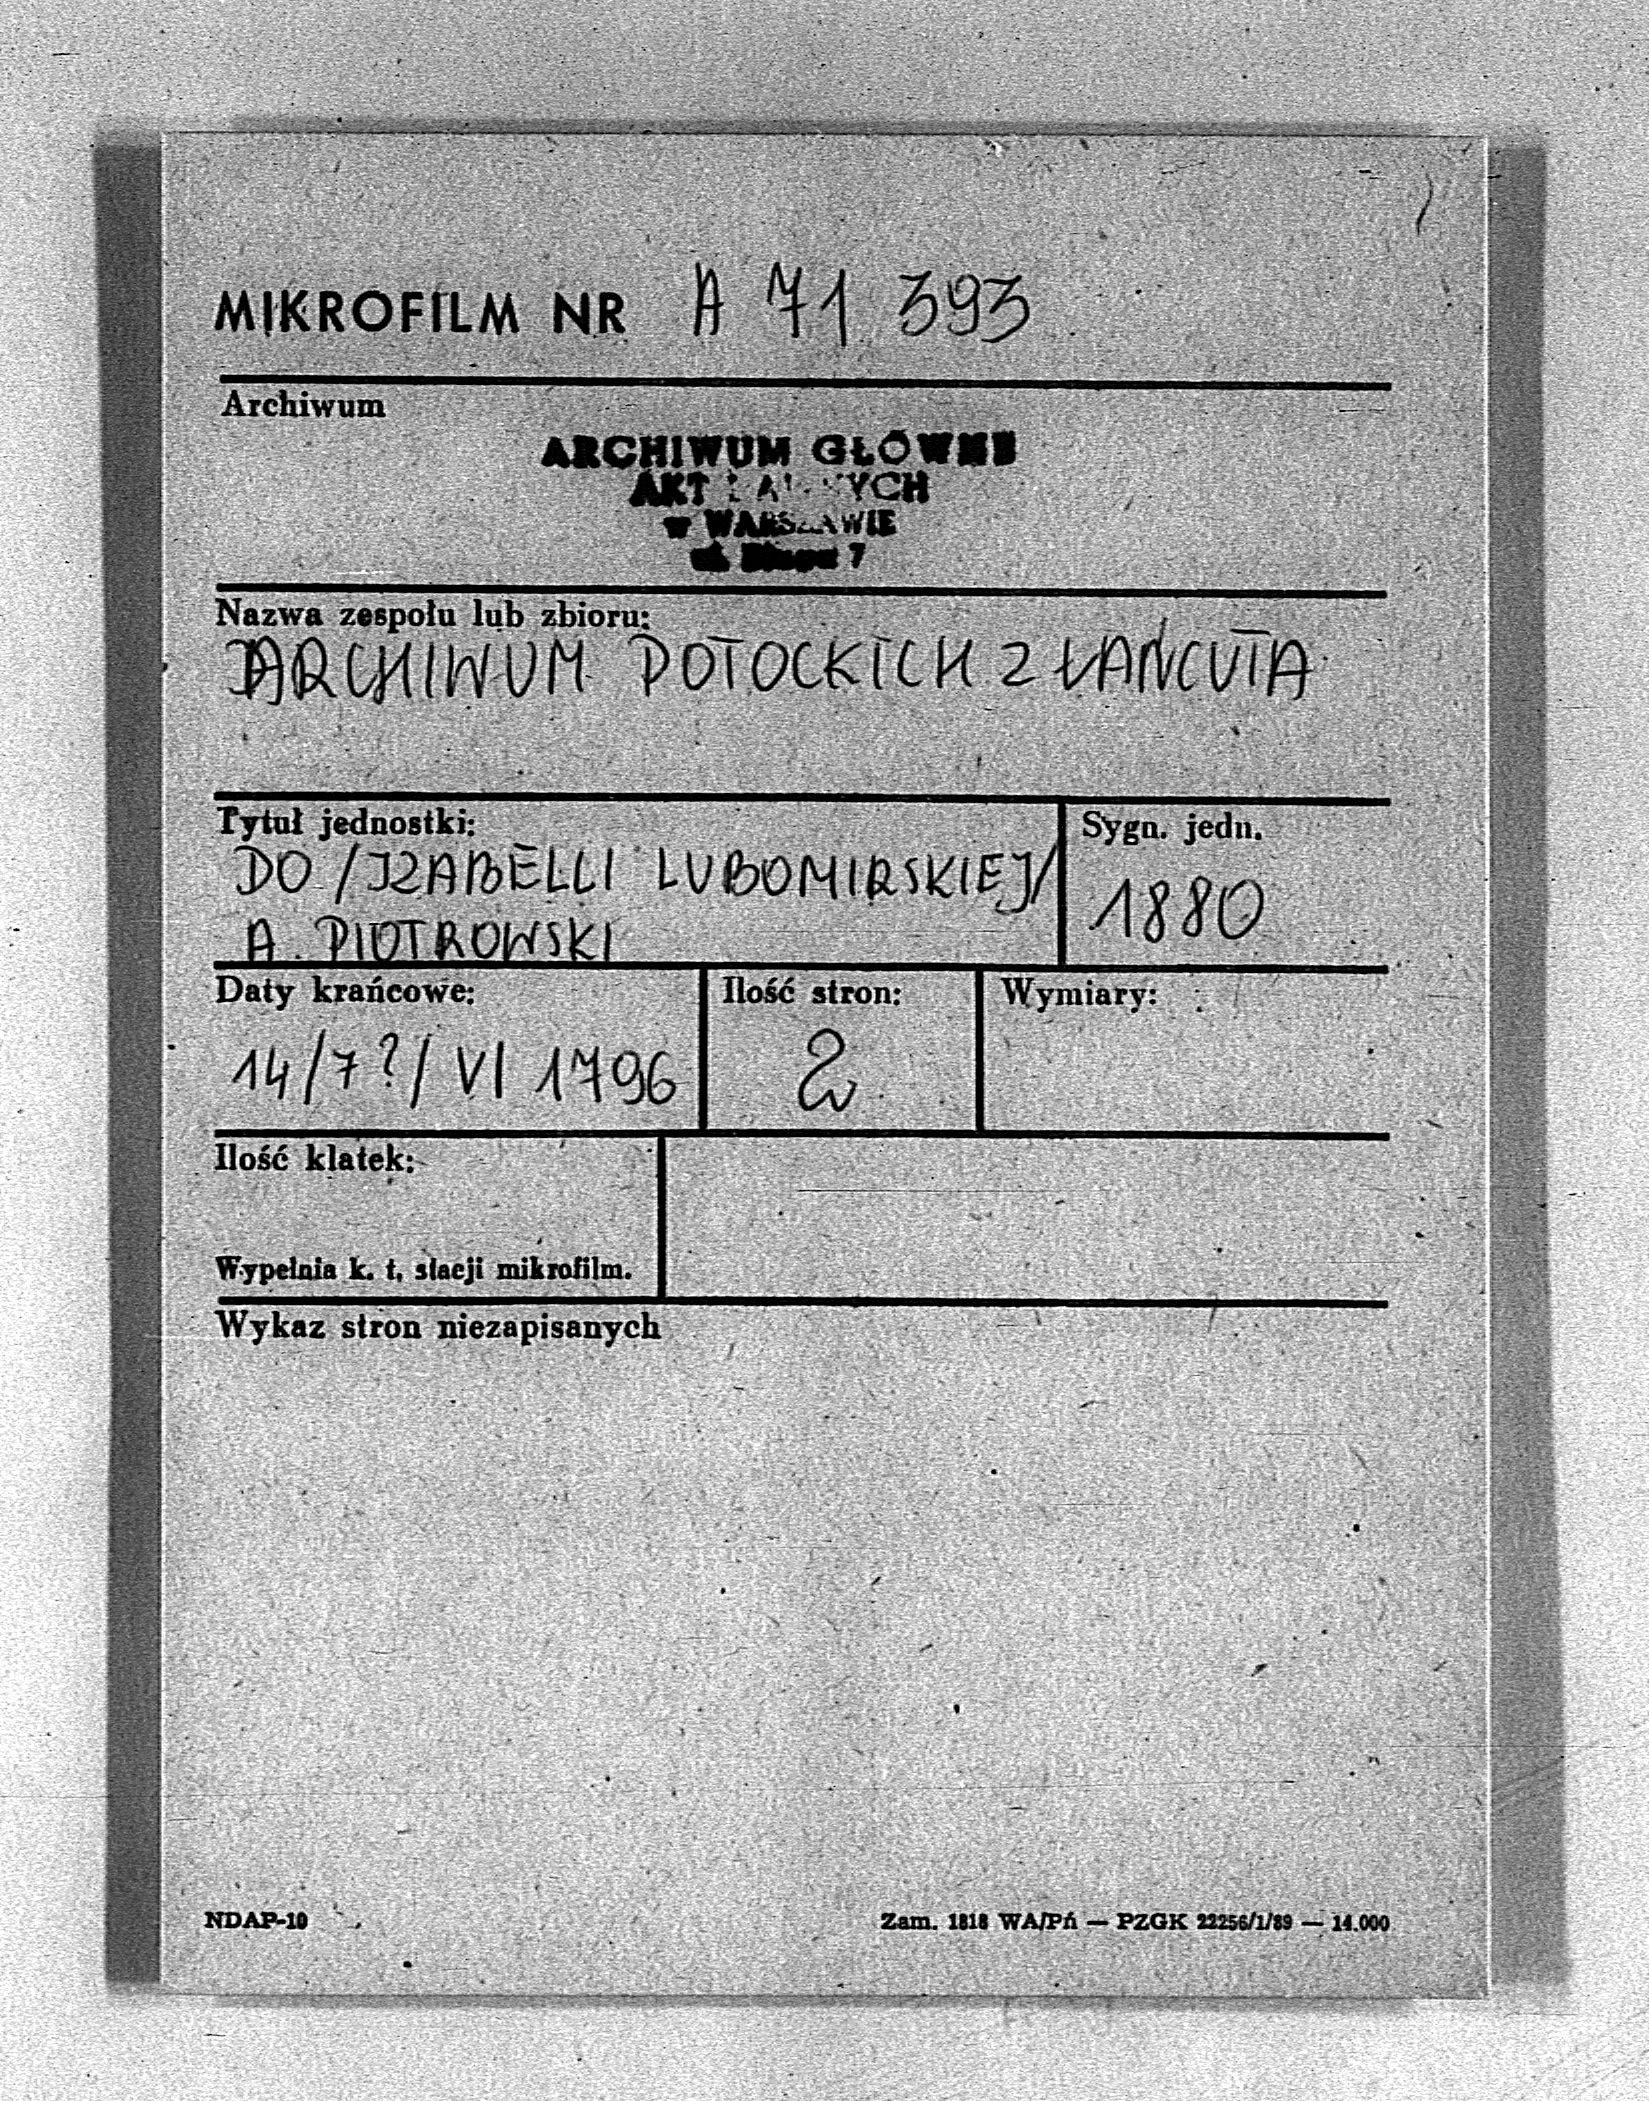 MIKROFILM NR A 71 393
Archiwum
ARCHIWUM GŁÓWNE
AKT
w WARSZAWIE
7
Nazwa zespołu lub zbioru:
ARCHIWUM POTOCKICH Z ŁAŃCUTA
Tytuł jednostki:
Sygn. jedn.
DO /IZABELLI LUBOMIRSKIEJ/
1880
A. PIOTROWSKI
Daty krańcowe:
Ilość stron:
Wymiary:
14/7?/ VI 1796
2
Ilość klatek:
Wypełnia k. t. stacji mikrofilm.
Wykaz stron niezapisanych
NDAP-10
Zam. 1818 WA/Pń — PZGK 22256/1/89 — 14.000